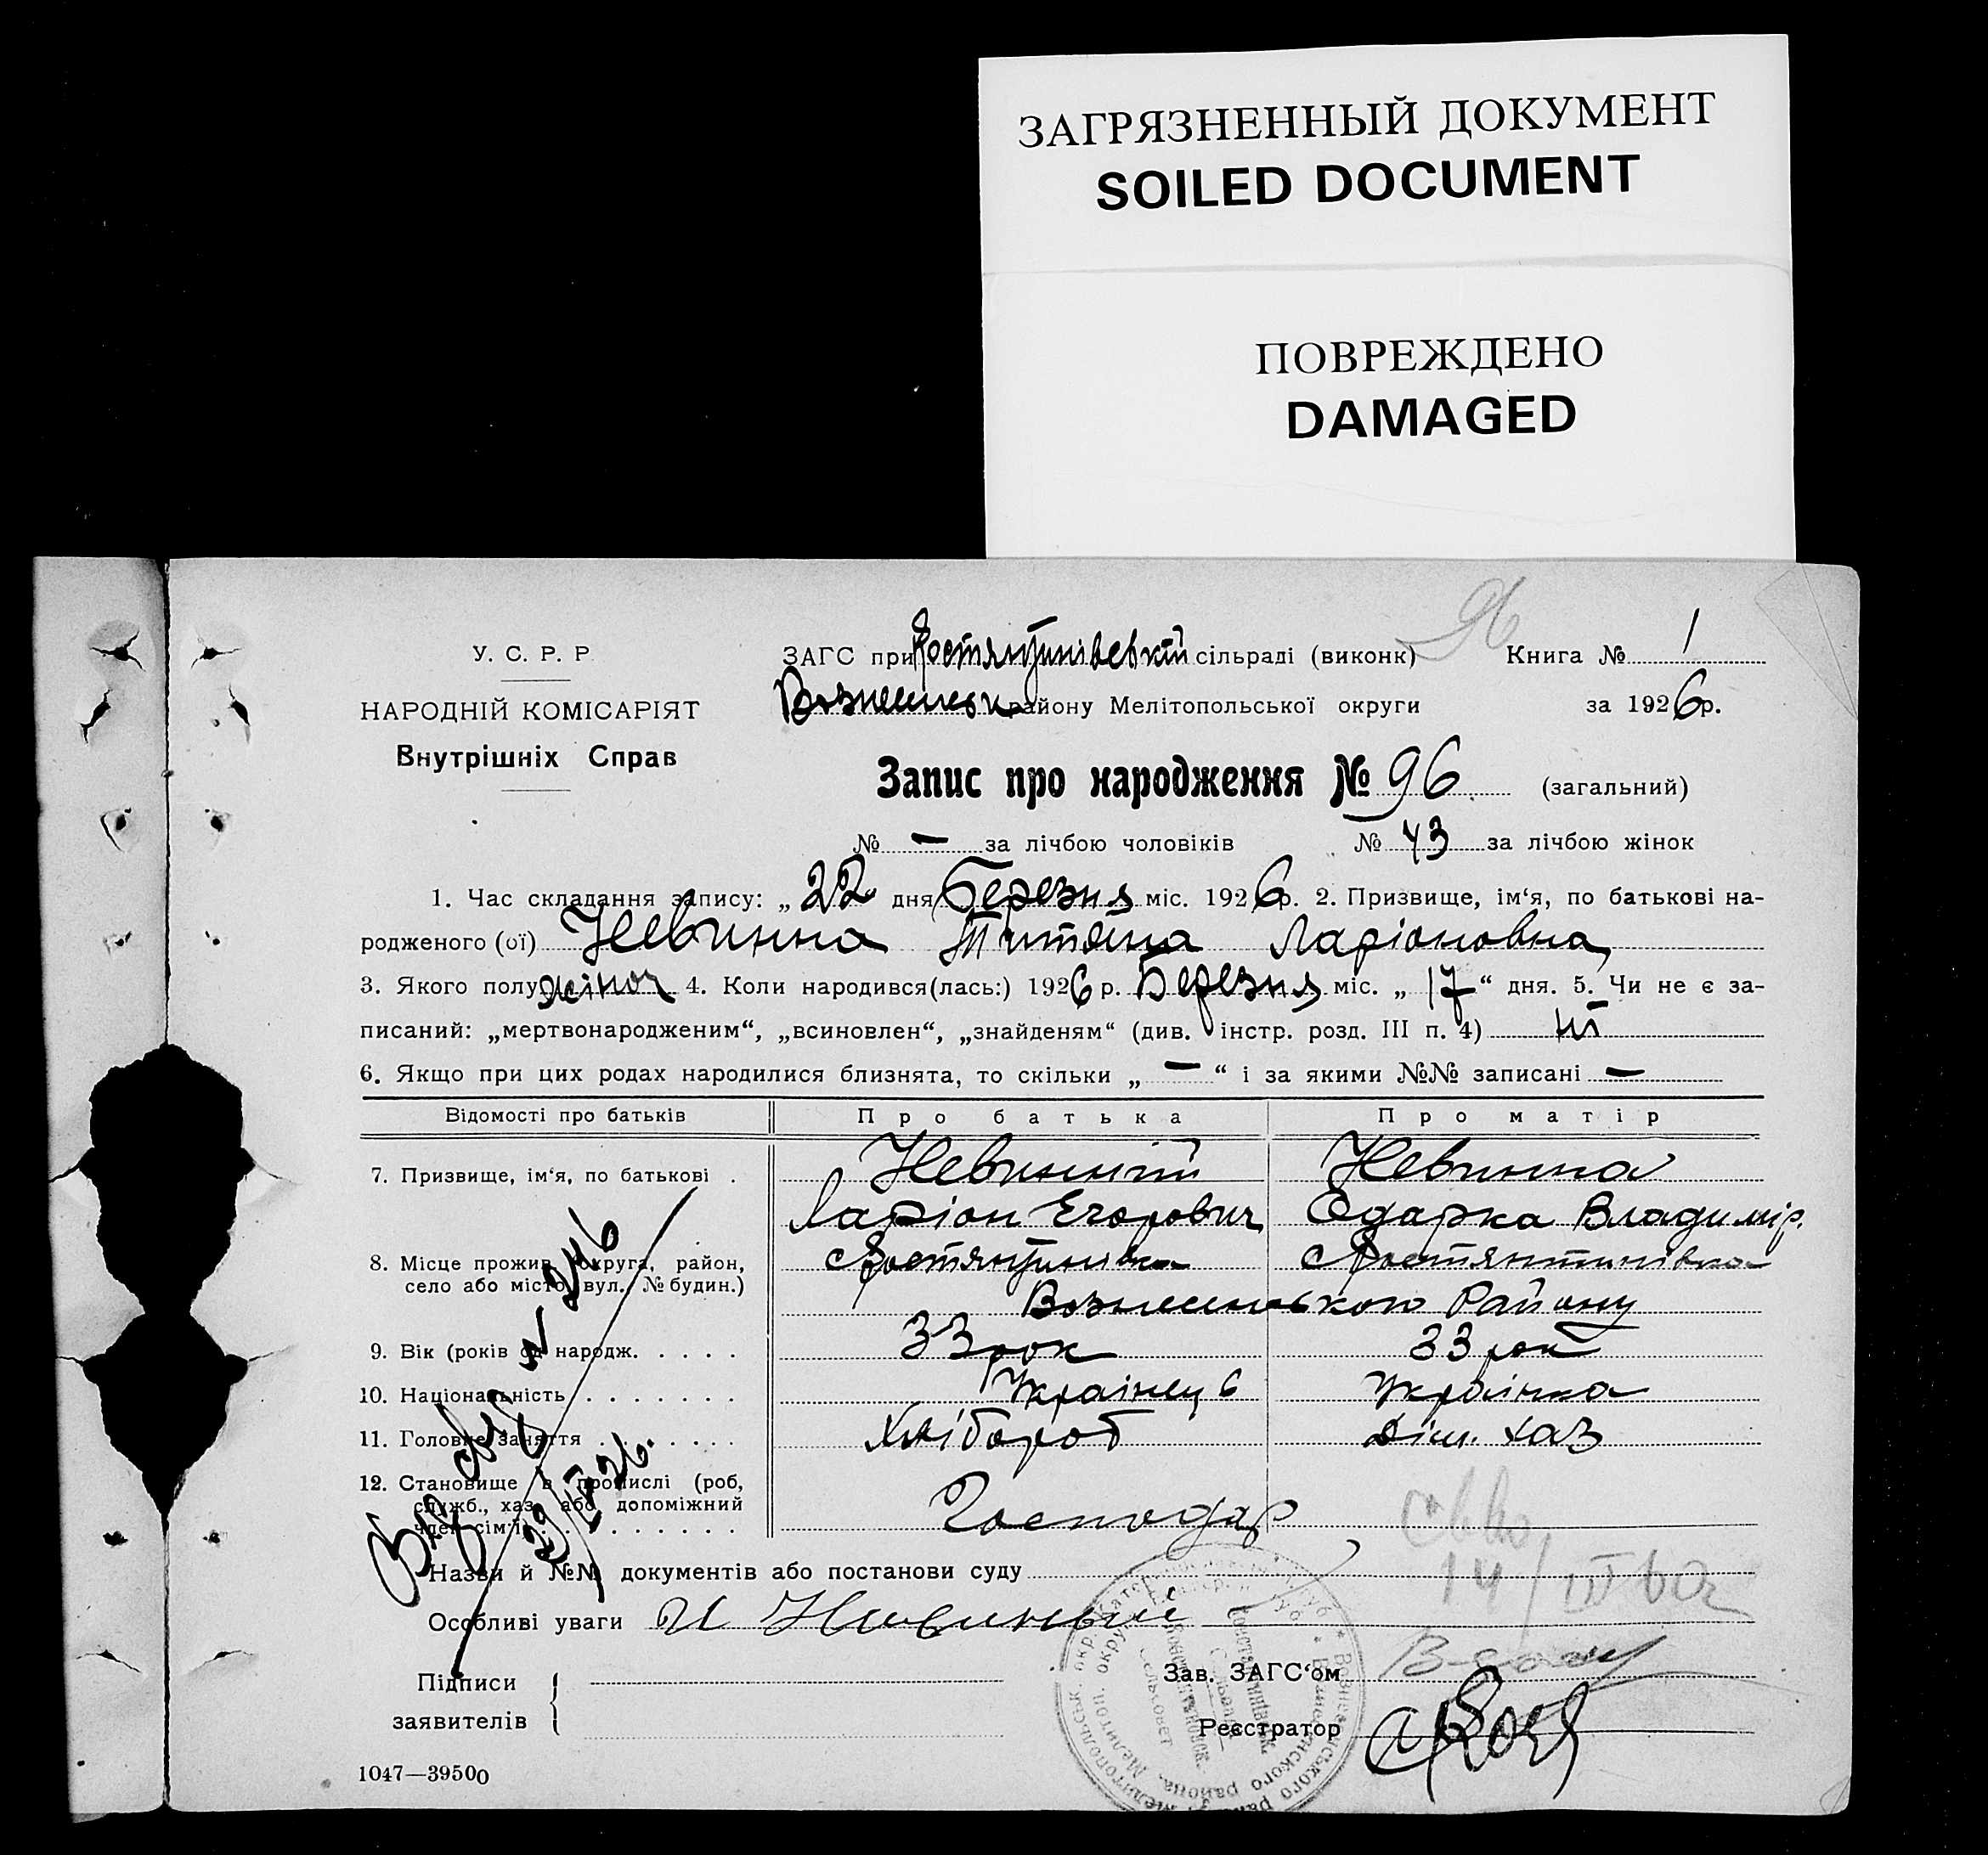 ЗАГРЯЗНЕННЫЙ ДОКУМЕНТ
SOILED DOCUMENT
ПОВРЕЖДЕНО
DAMAGED
У. С. Р. Р
НАРОДНІЙ КОМІСАРІЯТ
Внутрішніх Справ
ЗАГС при Костянтинівській сільраді (виконк) Книга № 1
Вознесенськ району Мелітопольської округи за 1926 р.
Запис про народження № 96 (загальний)
№ — за лічбою чоловіків № 43 за лічбою жінок
1. Час складання запису: „22" дня Березня міс. 1926 р. 2. Призвище, ім'я, по батькові на-
родженого (ої) Невинна Титяна Ларіоновна
3. Якого полу жіноч 4. Коли народився(лась:) 1926 р. Березня міс. „17“ дня. 5. Чи не є за-
писаний: „мертвонародженим“, „всиновлен“, „знайденям“ (див. інстр. розд. III п. 4) ні
6. Якщо при цих родах народилися близнята, то скільки „—“ і за якими №№ записані —
Відомості про батьків Про батька Про матір
7. Призвище, ім'я, по батькові . Невинний Невинна
Ларіон Егорович Одарка Владимір.
8. Місце прожив. округа, район, с Костянтинівка с Костянтинівка
село або місто, вул. № будин.)
Вознесенського Району
9. Вік (років од народж. . . . . 33 рок 33 рок
10. Національність . . . . . . . Українец Українка
11. Головне заняття . . . . . . . Хлібороб дім. хаз
12. Становище в промислі (роб,
служб., хаз. або допоміжний
член сім'ї) . . . . . . . . . Господар
Назви й №№ документів або постанови суду
14/III 60г
Особливі уваги И Невинный
Підписи
заявителів
Зав. ЗАГС'ом
Реєстратор
1047—39500